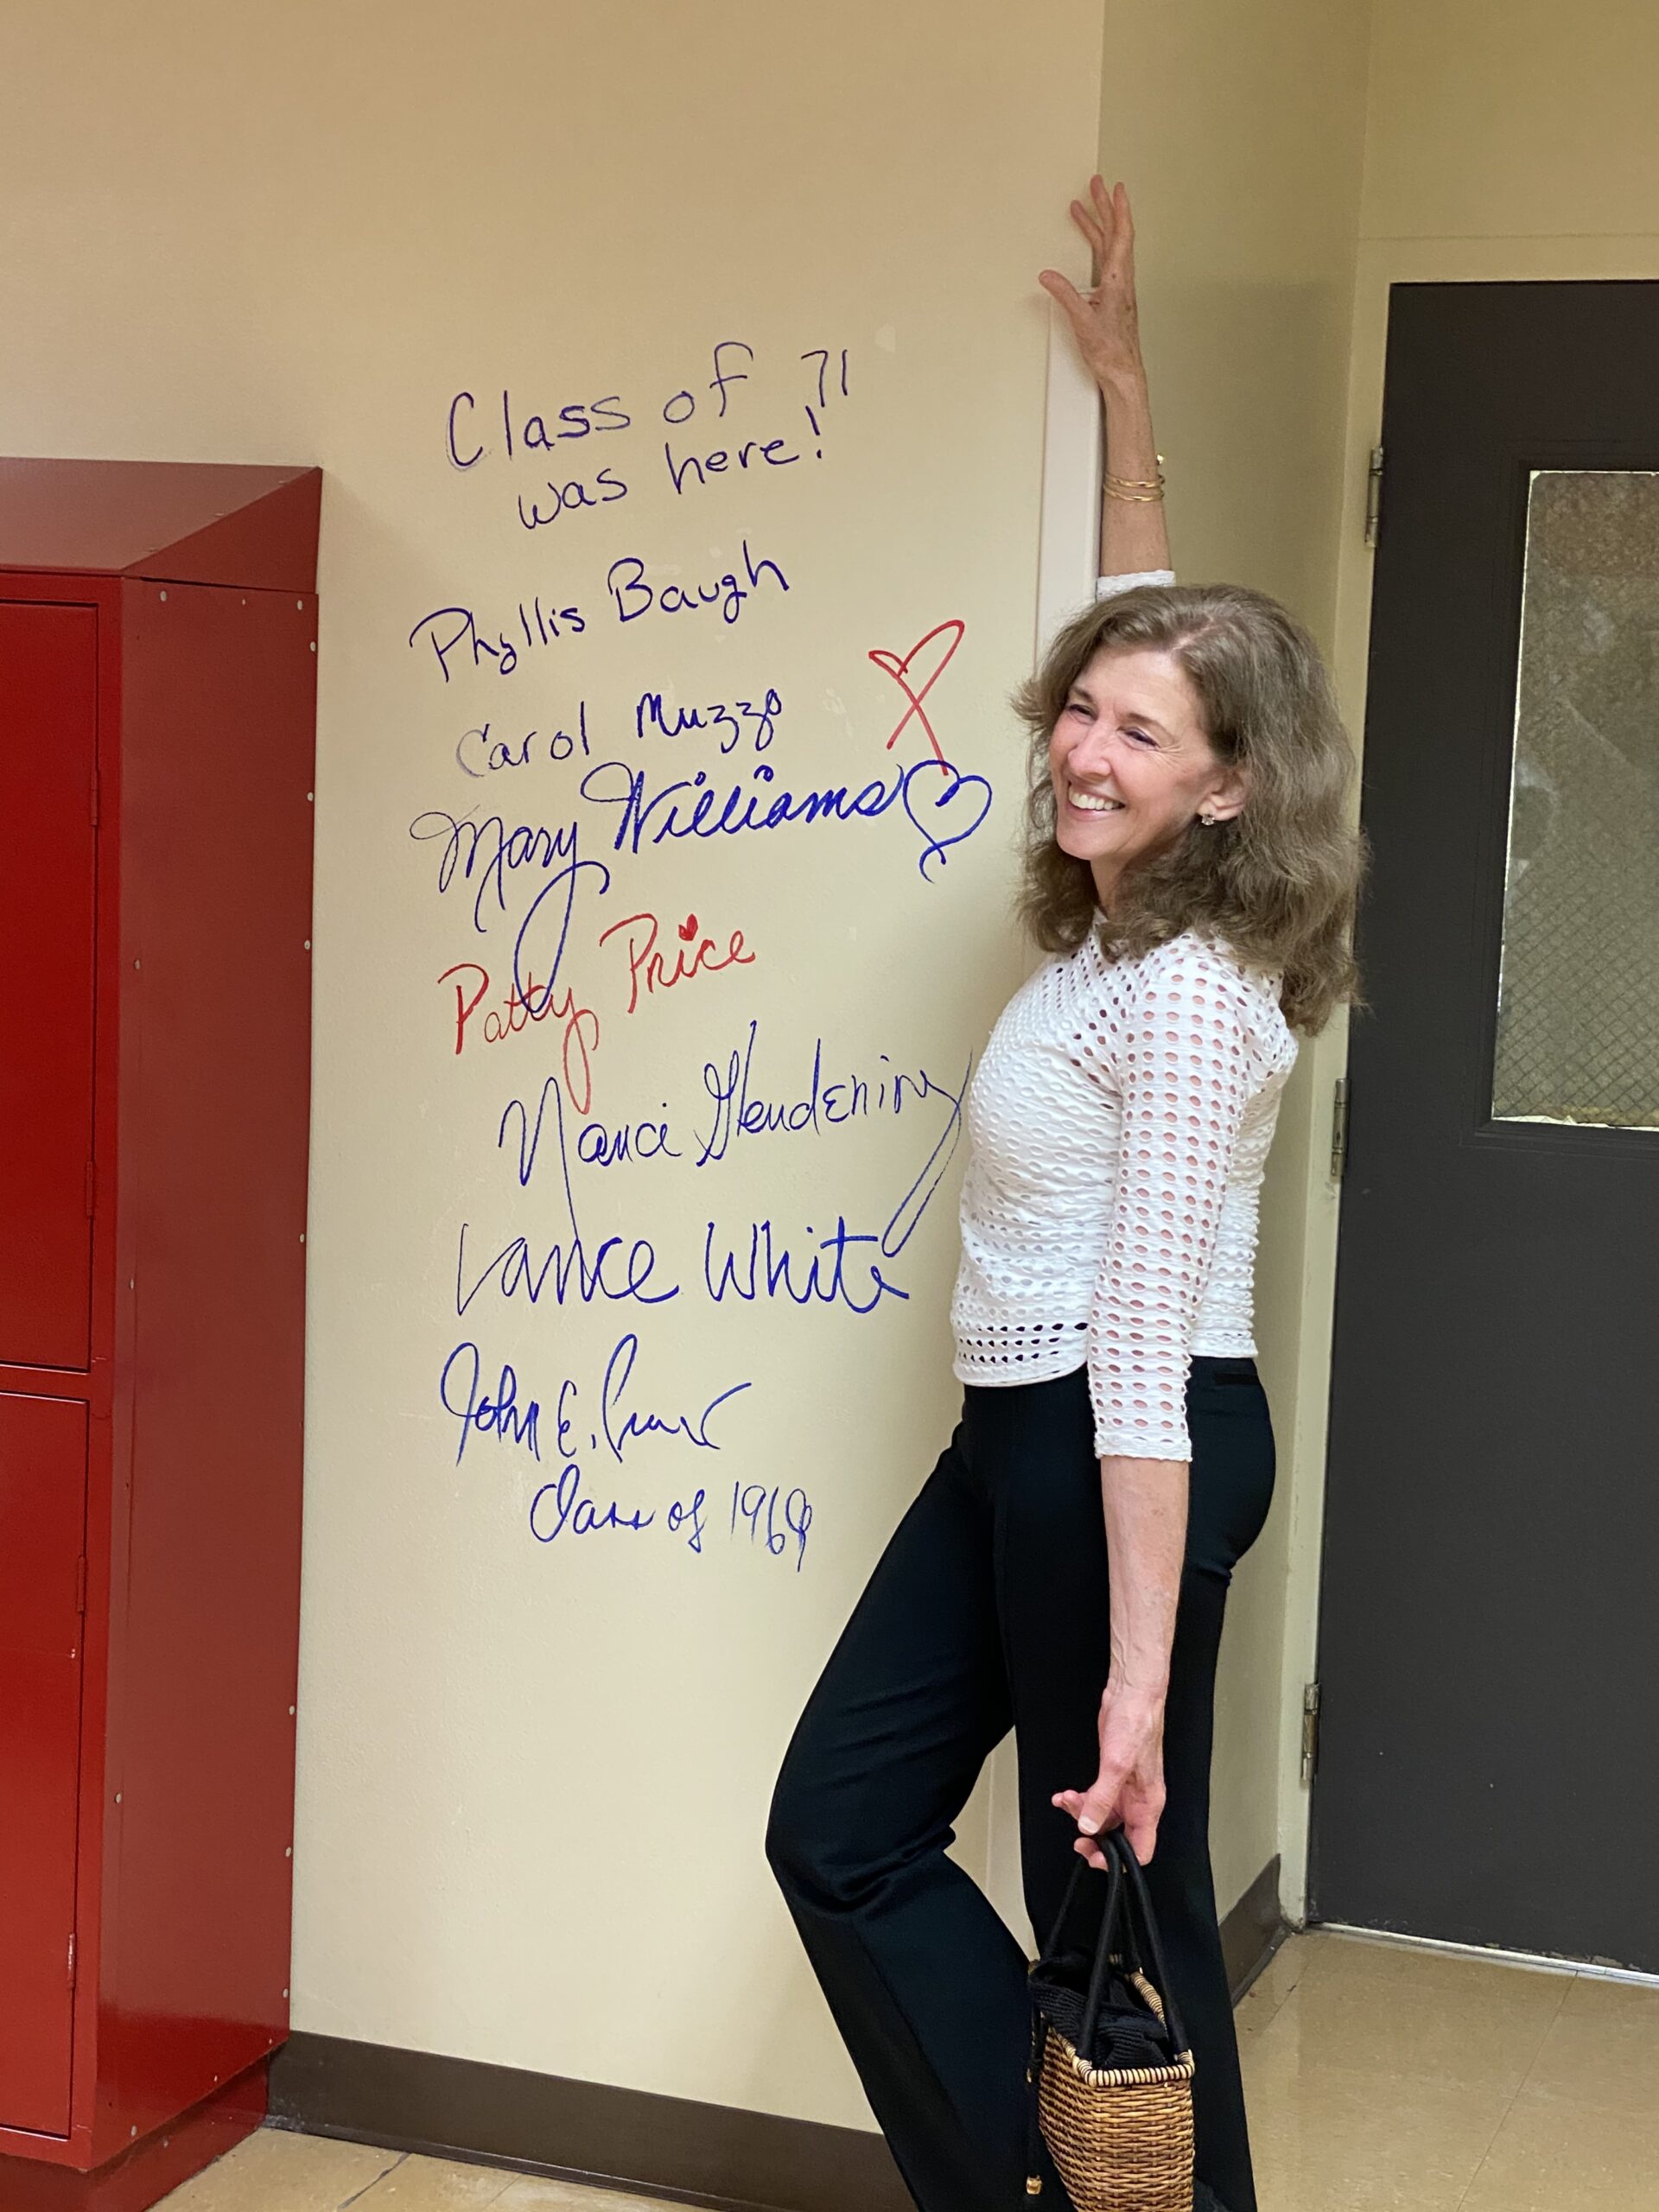 Class of 71
was here!
Phyllis Baugh
Carol Muzzo
Mary Williams
Patty Price
Nanci Glendening
Lance White
John E.
Class of 1969